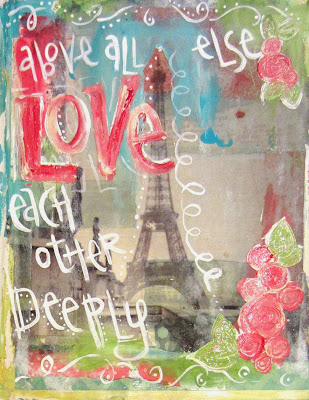 above all else
LOVE
each
other
DEEPLY